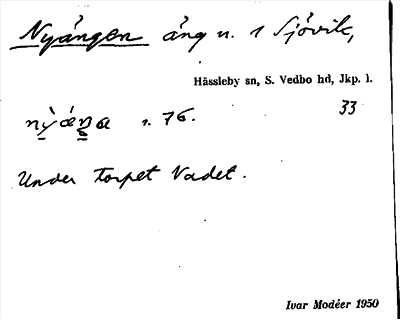 Nyängen äng n. 1 Sjövik,
Hässleby sn, S. Vedbo hd, Jkp. l.
33
s. 76.
Under torpet Vadet.
Ivar Modéer 1950